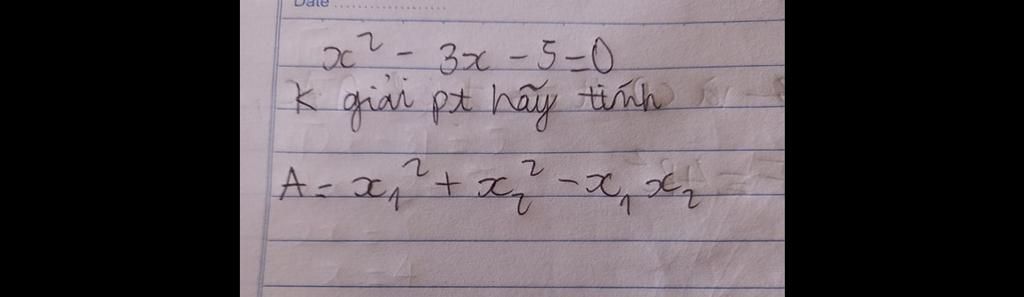 Date
x² - 3x - 5 = 0
K giải pt hãy tính
A = x₁² + x₂² - x₁ x₂